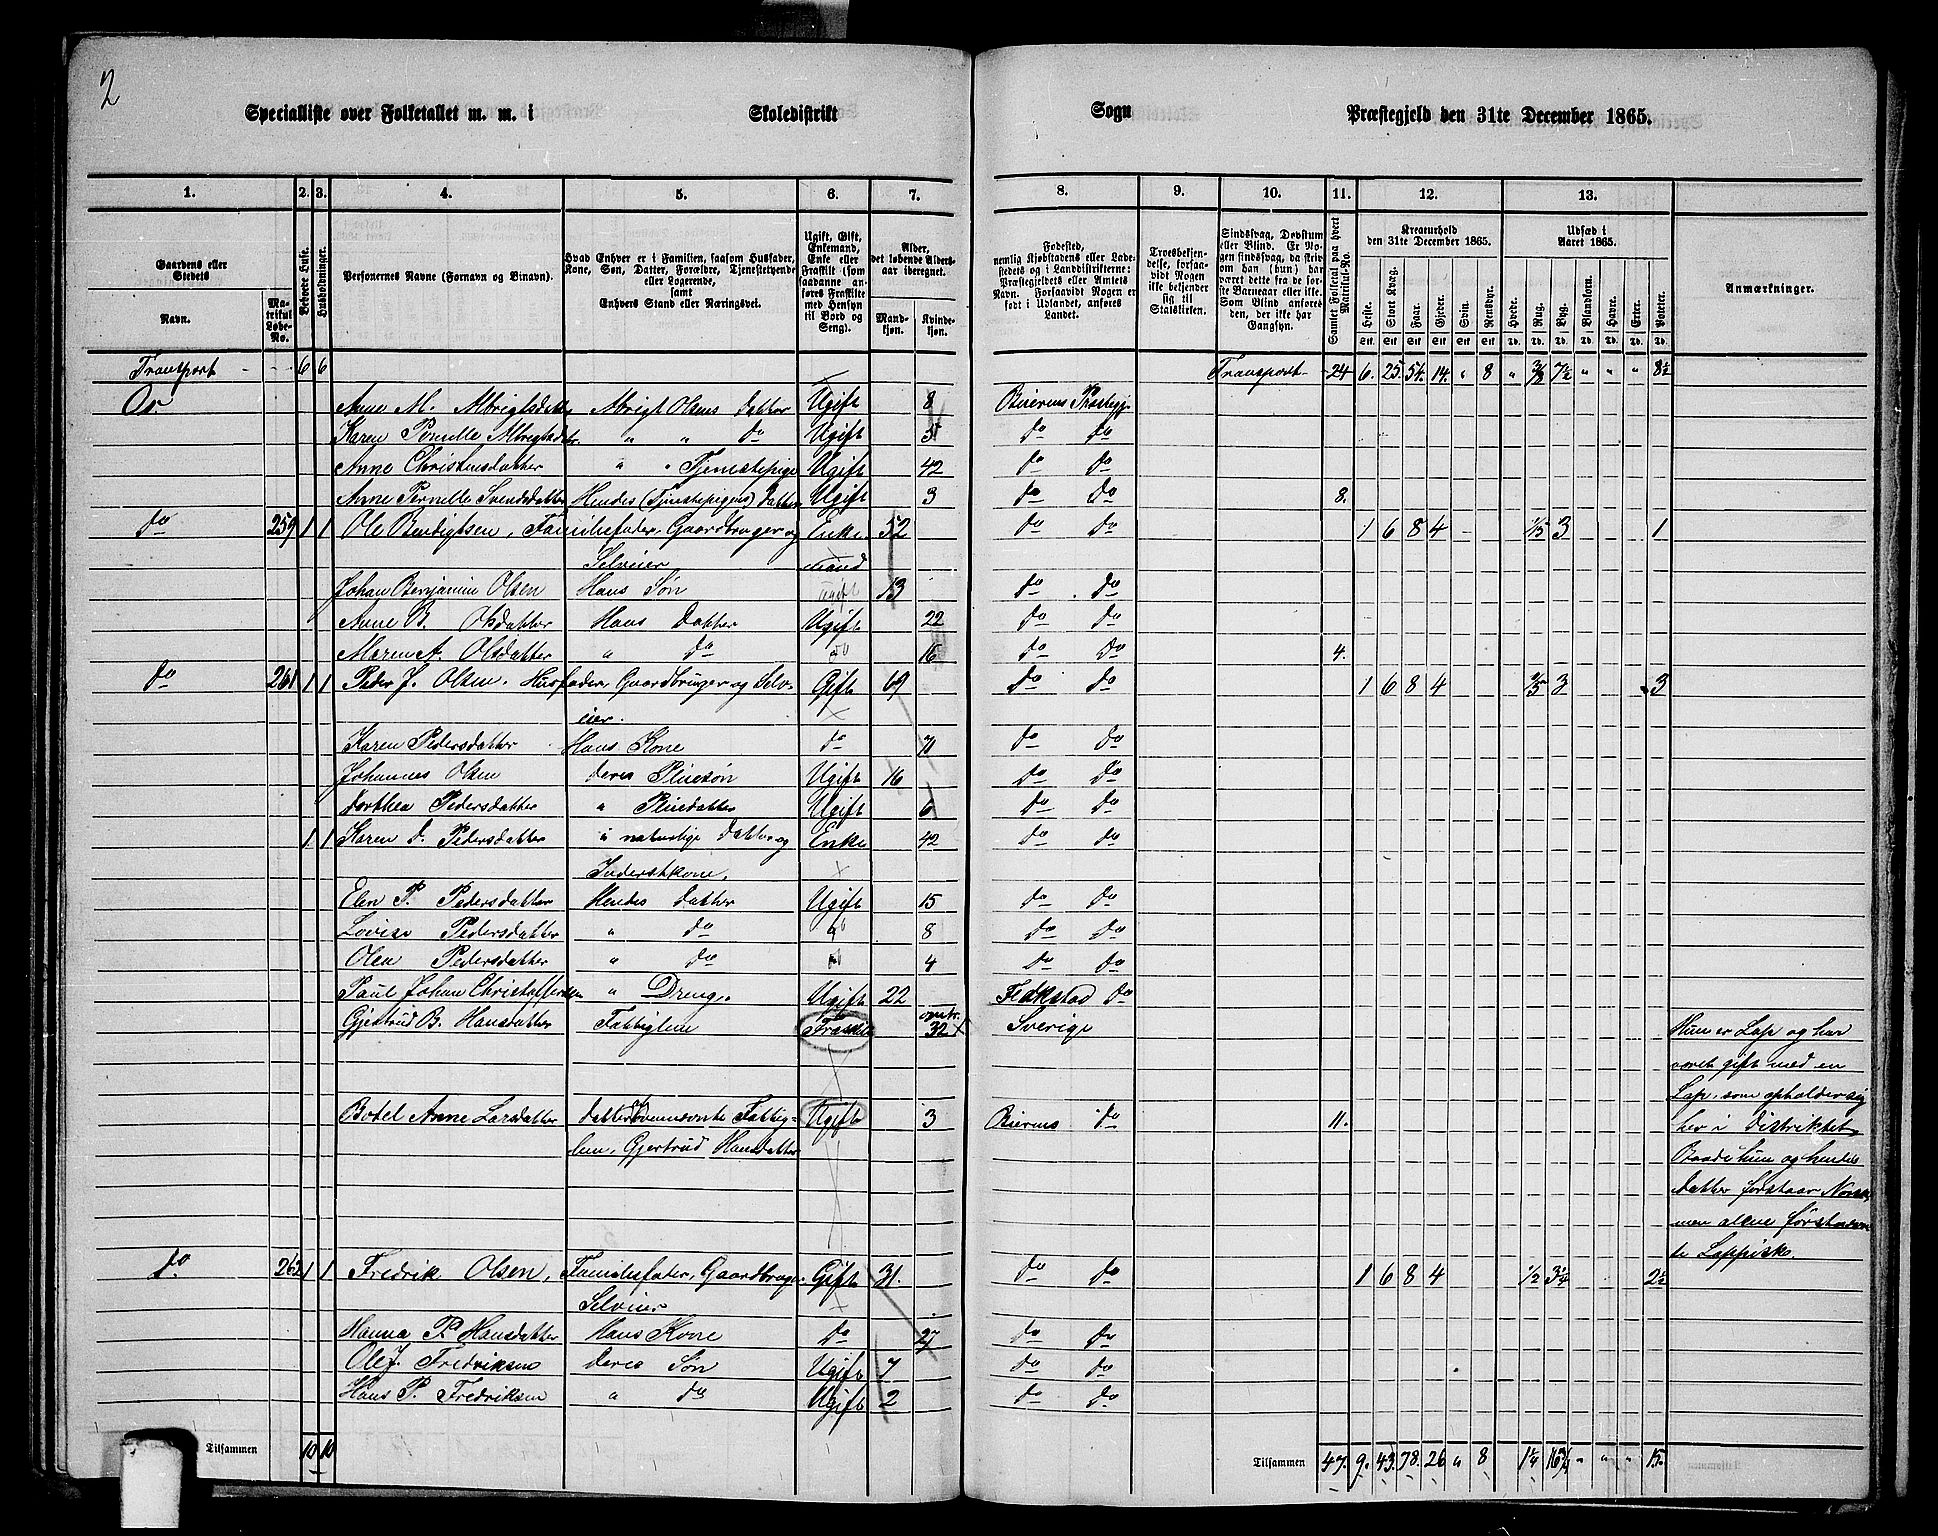 2
Specialliste over Folketallet m. m. i Skoledistrikt Sogn Præstegjeld den 31te December 1865.
1. 2. 3. 4. 5. 6. 7. 8. 9. 10. 11. 12. 13.
Gaardens eller Stedets Navn. Matrikul Løbe-No.
Beboede Huse.
Husholdninger.
Personernes Navne (Fornavn og Binavn).
Hvad Enhver er i Familien, saasom Husfader, Kone, Søn, Datter, Forældre, Tjenestetyende eller Logerende, samt Enhvers Stand eller Næringsvei.
Ugift, Gift, Enkemand, Enke eller Fraskilt (som saadanne anføres Fraskilte med Hensyn til Bord og Seng).
Alder, det løbende Aldersaar iberegnet.
Mandkjøn. Kvindekjøn.
Fødested, nemlig Kjøbstadens eller Ladestedets og i Landdistrikterne: Præstegjeldets eller Amtets Navn. Forsaavidt Nogen er født i Udlandet, anføres Landet.
Troesbekjendelse, forsaavidt Nogen ikke bekjender sig til Statskirken.
Sindssvag, Døvstum eller Blind. Er Nogen sindssvag, da skriv om han (hun) har været dette fra de første Barneaar eller ikke. Som Blind anføres den, der ikke har Gangsyn.
Samlet Folketal paa hvert Matrikul-No.
Kreaturhold den 31te December 1865.
Heste. Stort Kvæg. Faar. Gjeder. Svin. Rensdyr.
Udsæd i Aaret 1865.
Hvede. Rug. Byg. Blandkorn. Havre. Erter. Poteter.
Anmærkninger.
Transport 6 6 Transport 24 6. 25. 54. 14. " 8 " 3/8 7½ " " " 8½
Os Anne M. Albrigtsdatter Albrigt Olsens Datter Ugift 8 Beierens Præstegj.
Karen Pernille Albrigtsdtr. " " do Ugift 5 do do
Anne Christensdatter " " Tjenestepige Ugift 42 do do
Anne Pernille Svendsdatter Hendes (Tjenestepigens) Datter Ugift 3 do do 8.
do 259 1 1 Ole Bendigtsen, Familiefader, Gaardbruger og Enke- 52 do do 1 6 8 4 1/5 3 1
Selveier mand
Johan Benjamin Olsen Hans Søn Ugift 13 do do
Anne B. Olsdatter Hans Datter Ugift 22 do do
Maren A. Olsdatter " do do 16 do do 4.
do 261 1 1 Peder J. Olsen. Husfader, Gaardbruger og Selv- Gift 69 do do 1 6 8 4 2/5 3 3
eier.
Karen Pedersdatter Hans Kone do 71 do do
Johannes Olsen deres Pleiesøn Ugift 16 do do
Dorthea Pedersdatter " Pleiedatter Ugift 6 do do
1 1 Karen D. Pedersdatter " naturlige Datter og Enke 42 do do
Inderstkone.
Elen P. Pedersdatter Hendes Datter Ugift 15 do do
Lovise Pedersdatter " do do 8 do do
Olea Pedersdatter " do do 4 do do
Paul Johan Christoffersen " Dreng. Ugift 22 do
Gjertrud B. Hansdatter Fattiglem Fraskilt omtr. 32 Sverige
Hun er Lap og har
været gift med en
Lap, som opholder sig
her i Distriktet
Baade hun og hendes
datter forstaar Norsk,
men ældre
Lappisk.
Botel Anne Larsdatter Datter af ovennævnte Fattig- Ugift 3 Beierens do 11.
lem, Gjertrud Hansdatter
do 262 1 1 Fredrik Olsen, Familiefader, Gaardbruger Gift 31. do do 1 6 8 4 1/2 3¼ 2½
Selveier
Hanna P. Hansdatter Hans Kone do 27 do do
Ole J. Fredriksen deres Søn Ugift 7 do do
Hans P. Fredriksen " do Ugift 2 do do
Tilsammen 10 10 Tilsammen 47. 9. 43. 78. 26 " 8 1¼ 16¾ " " " 15.